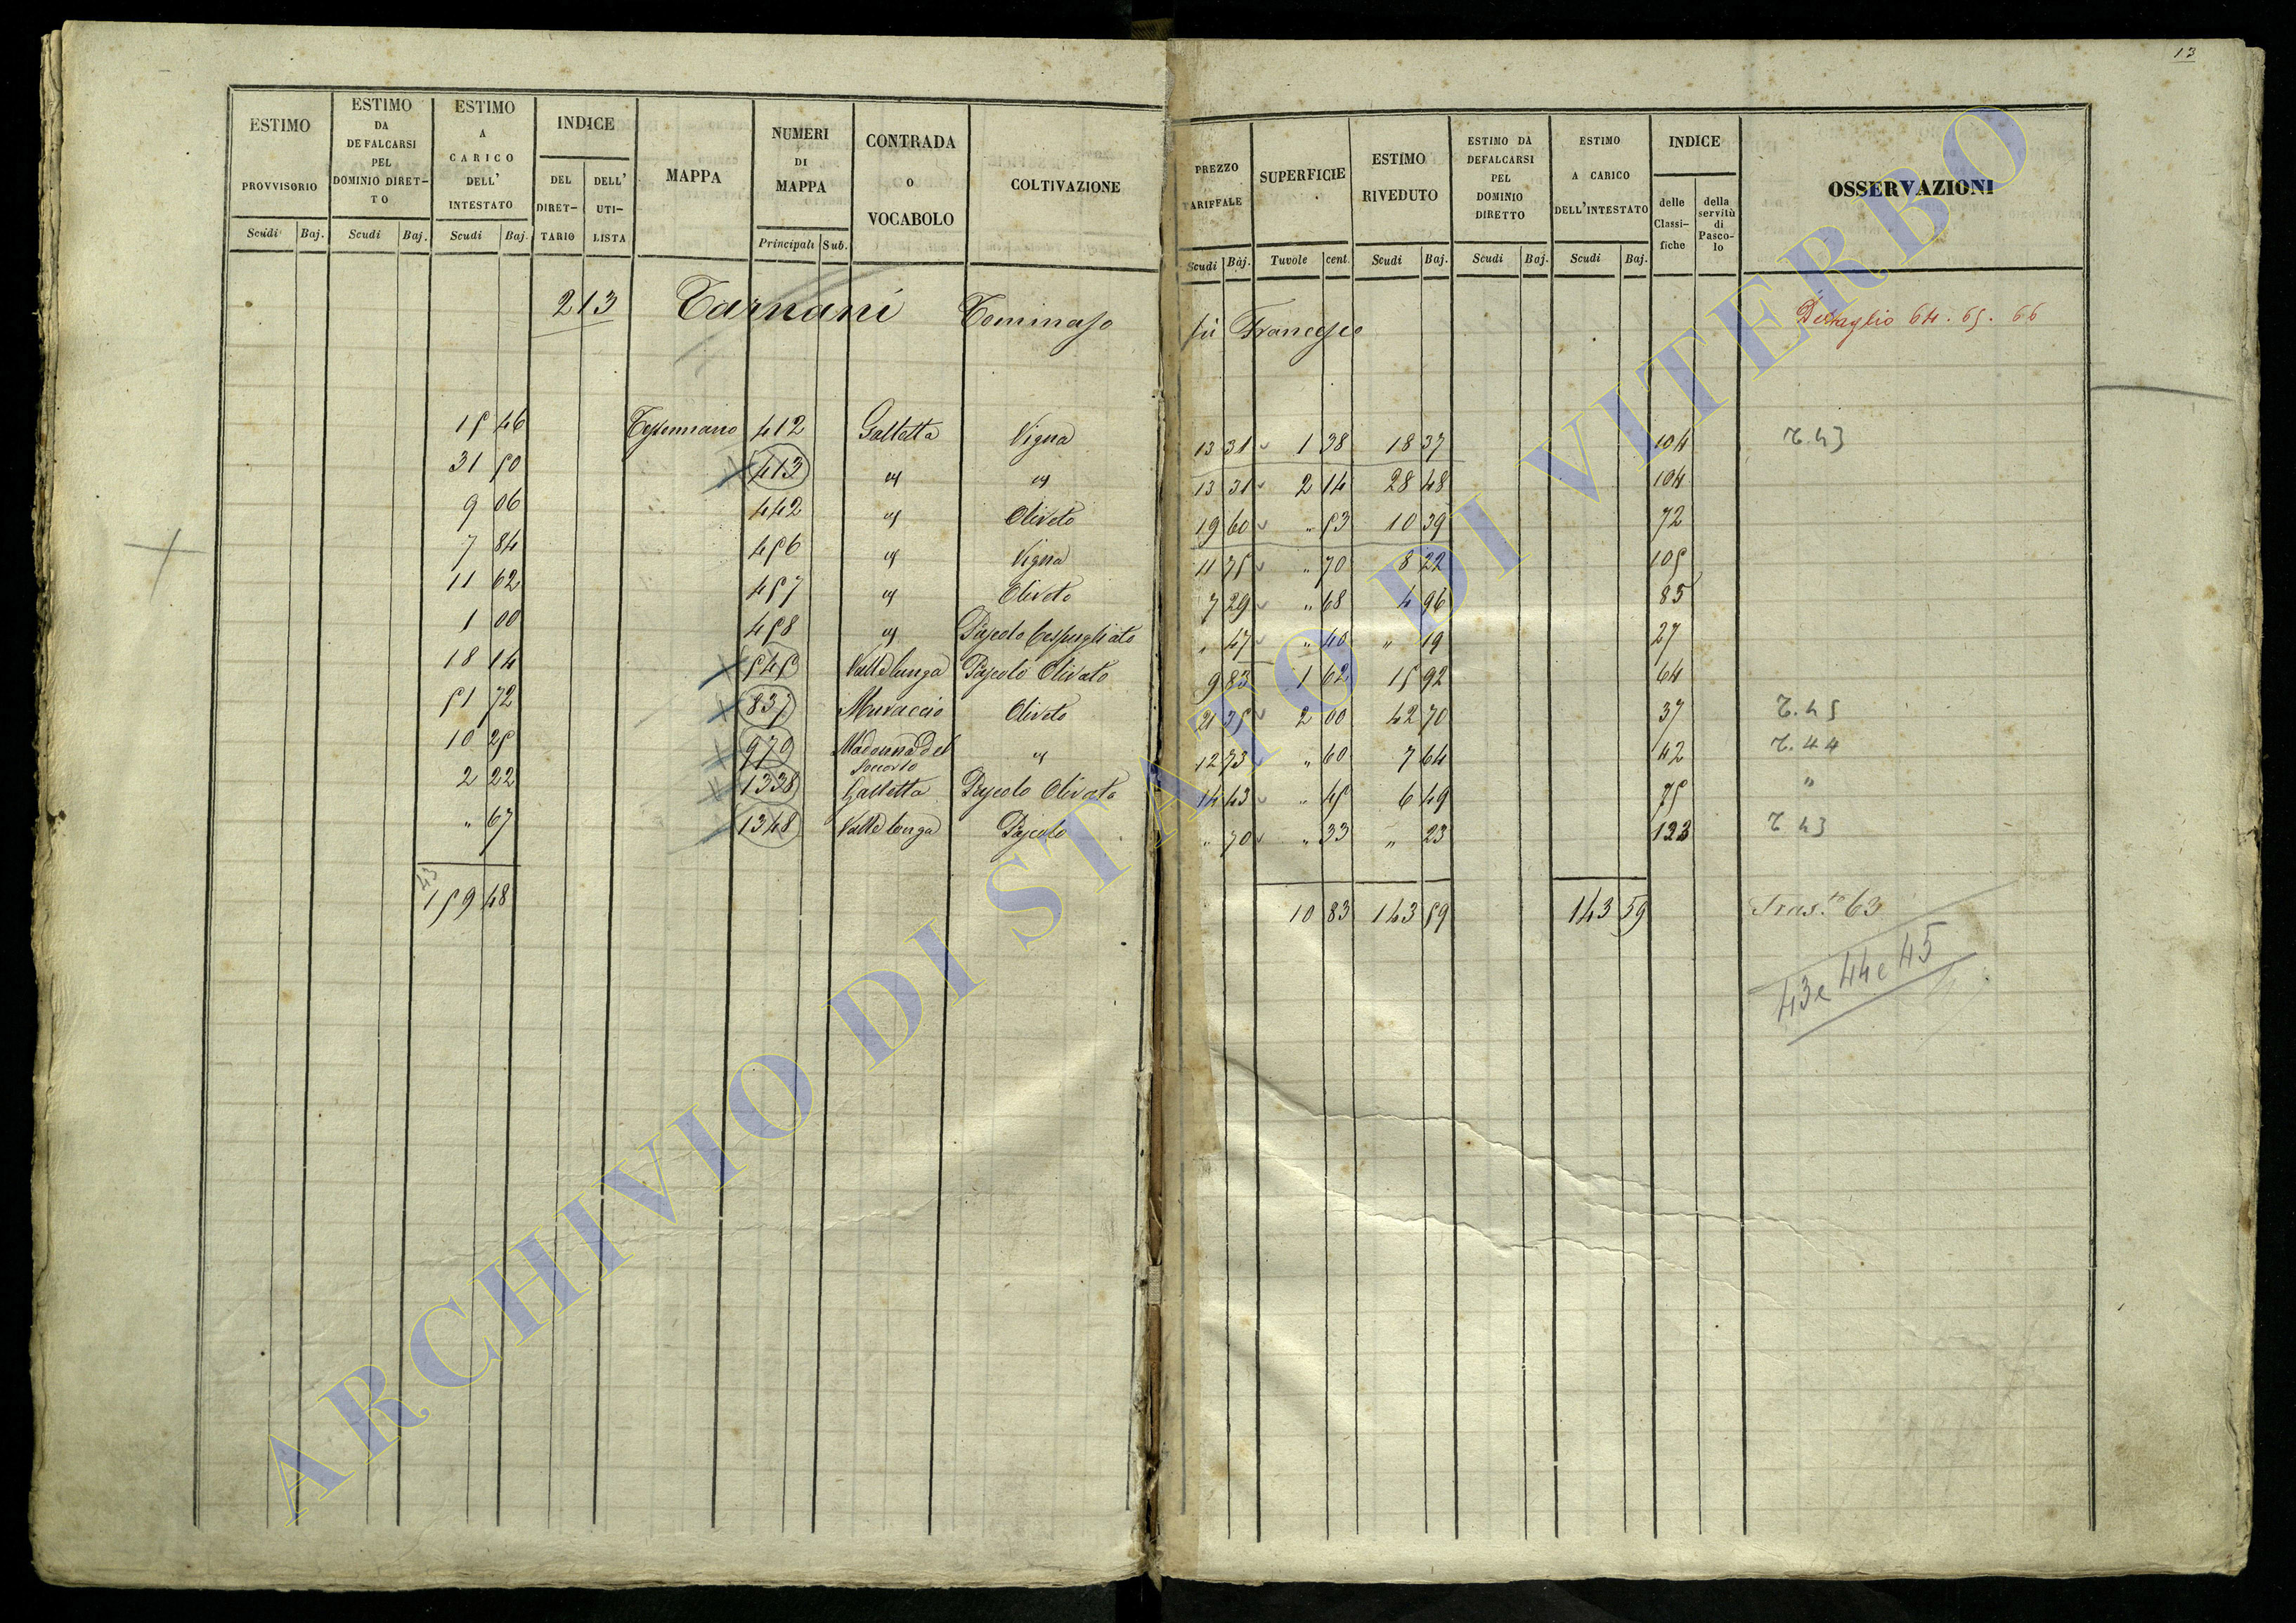 13
ESTIMO PROVVISORIO | ESTIMO DA DEFALCARSI PEL DOMINIO DIRETTO | ESTIMO A CARICO DELL' INTESTATO | INDICE DEL DIRETTARIO | DELL' UTILISTA | MAPPA | NUMERI DI MAPPA | CONTRADA O VOCABOLO | COLTIVAZIONE | PREZZO TARIFFALE | SUPERFICIE | ESTIMO RIVEDUTO | ESTIMO DA DEFALCARSI PEL DOMINIO DIRETTO | ESTIMO A CARICO DELL'INTESTATO | INDICE delle Classifiche | della servitù di Pascolo | OSSERVAZIONI
Scudi | Baj. | Scudi | Baj. | Scudi | Baj. | Principali | Sub. | Scudi | Baj. | Tavole | cent. | Scudi | Baj. | Scudi | Baj. | Scudi | Baj.
213 Tarnani Tommaso fù Francesco Dettaglio 64. 65. 66
15 46 Tessennano 412 Galletta Vigna 13 31 1 38 18 37 104 T. 43
31 50 413 " " 13 31 2 14 28 48 104
9 06 442 " Oliveto 19 60 " 53 10 39 72
7 84 456 " Vigna 11 75 " 70 8 22 105
11 62 457 " Oliveto 7 29 " 68 4 96 85
1 00 458 " Pascolo Cespugliato " 47 " 40 " 19 27
18 14 545 Valle lunga Pascolo Olivato 9 83 1 62 15 92 64
51 72 837 Muraccio Oliveto 21 35 2 00 42 70 37 T. 45
10 25 979 Madonna del Soccorso " 12 73 " 60 7 64 42 T. 44
2 22 1338 Galletta Pascolo Olivato 14 43 " 45 6 49 75 "
" 67 1348 Valle lunga Pascolo " 70 " 33 " 23 123 T. 43
43
159 48 10 83 143 59 143 59 Tras.to 63
43 e 44 e 45
ARCHIVIO DI STATO DI VITERBO